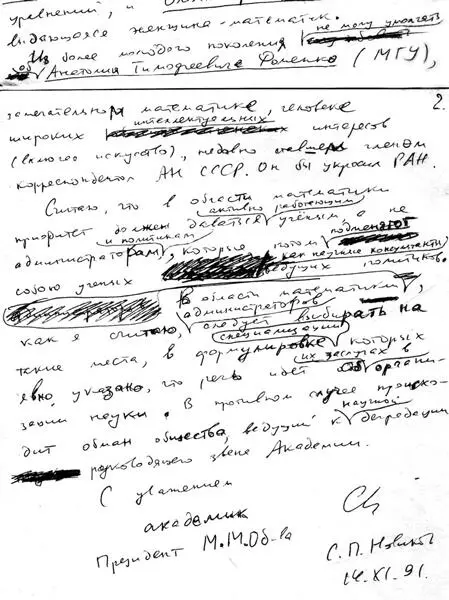 уравнений, и
выдающаяся женщина-математик.
Из более молодого поколения не могу умолчать
об Анатолия Тимофеевича Фоменко (МГУ),
2.
замечательном математике, человеке
широких интеллектуальных интересов
(включая искусство), недавно ставшем членом
корреспондентом АН СССР. Он бы украсил РАН.
Считаю, что в области математики
приоритет должен даваться активно работающим учёным а не
администраторам и политикам, которые потом подменяют
собою ученых как научные консультанты ведущих политиков.
В области математики,
как я считаю, администраторов следует выбирать на
такие места, в формулировке специализации которых
явно указано, что речь идет об их заслугах в органи-
зации науки. В противном случае происхо-
дит обман общества, ведущий к научной деградации
руководящего звена Академии.
С уважением
академик
Президент М.М.Об-ва
С. П. Новиков
14.XI.91.